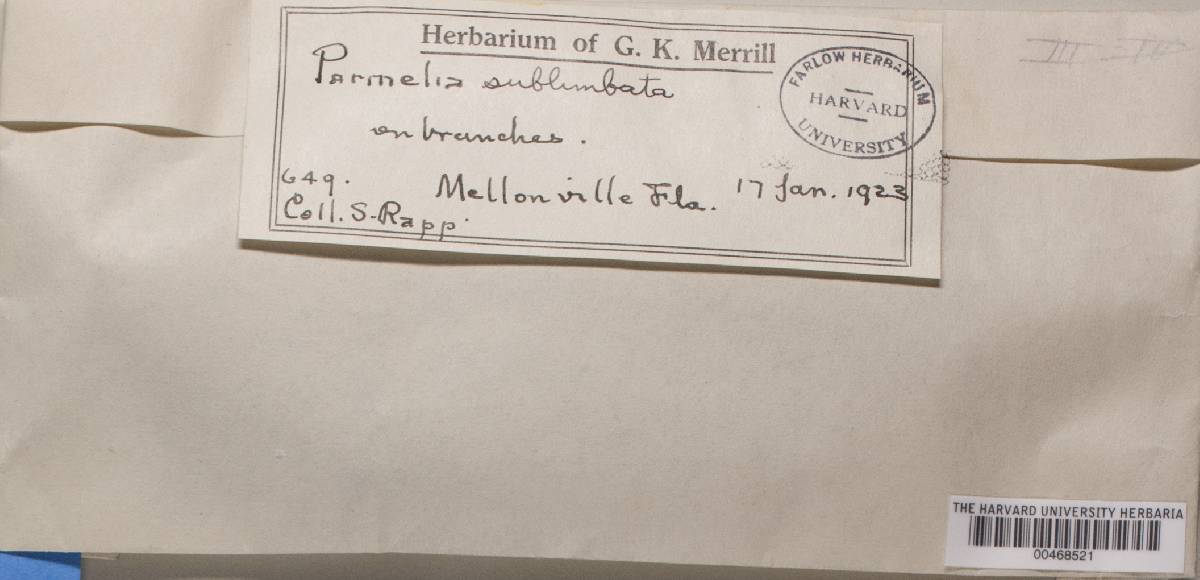 Herbarium of G. K. Merrill
Parmelia sublimbata
on branches.
FARLOW HERBARIUM
HARVARD
UNIVERSITY
649.
Mellonville Fla. 17 Jan. 1923
Coll. S. Rapp.
THE HARVARD UNIVERSITY HERBARIA
00468521